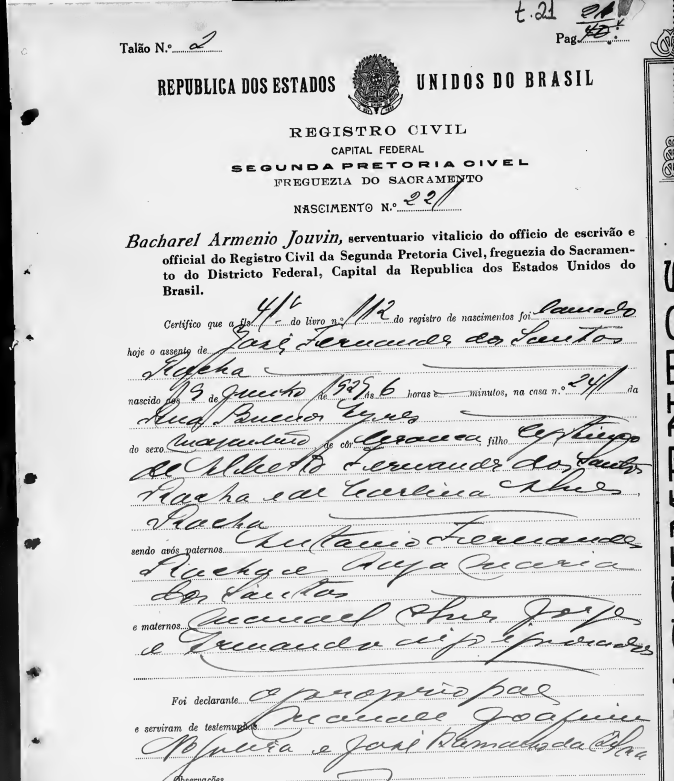 t. 21
Talão N.º 2
Pag.
REPUBLICA DOS ESTADOS UNIDOS DO BRASIL
REGISTRO CIVIL
CAPITAL FEDERAL
SEGUNDA PRETORIA CIVEL
FREGUEZIA DO SACRAMENTO
NASCIMENTO N.º 221
Bacharel Armenio Jouvin, serventuario vitalicio do officio de escrivão e
official do Registro Civil da Segunda Pretoria Civel, freguezia do Sacramen-
to do Districto Federal, Capital da Republica dos Estados Unidos do
Brasil.
Certifico que a fls. 41v do livro n.º 112 do registro de nascimentos foi lavrado
hoje o assento de José Fernandes dos Santos
Rocha
nascido aos de Junho de às 6 horas e minutos, na casa n.º 241 da
Rua Buenos Ayres
do sexo masculino de côr branca filho legitimo
de Alberto Fernandes dos Santos
Rocha e de Carlina Alves
Rocha
sendo avós paternos Antonio Fernandes
Rocha e Maria
dos Santos
e maternos Manoel Alves Jorge
e
Foi declarante o proprio pae
e serviram de testemunhas Manoel Joaquim
Nogueira e José Ramalho da Silva
Observações